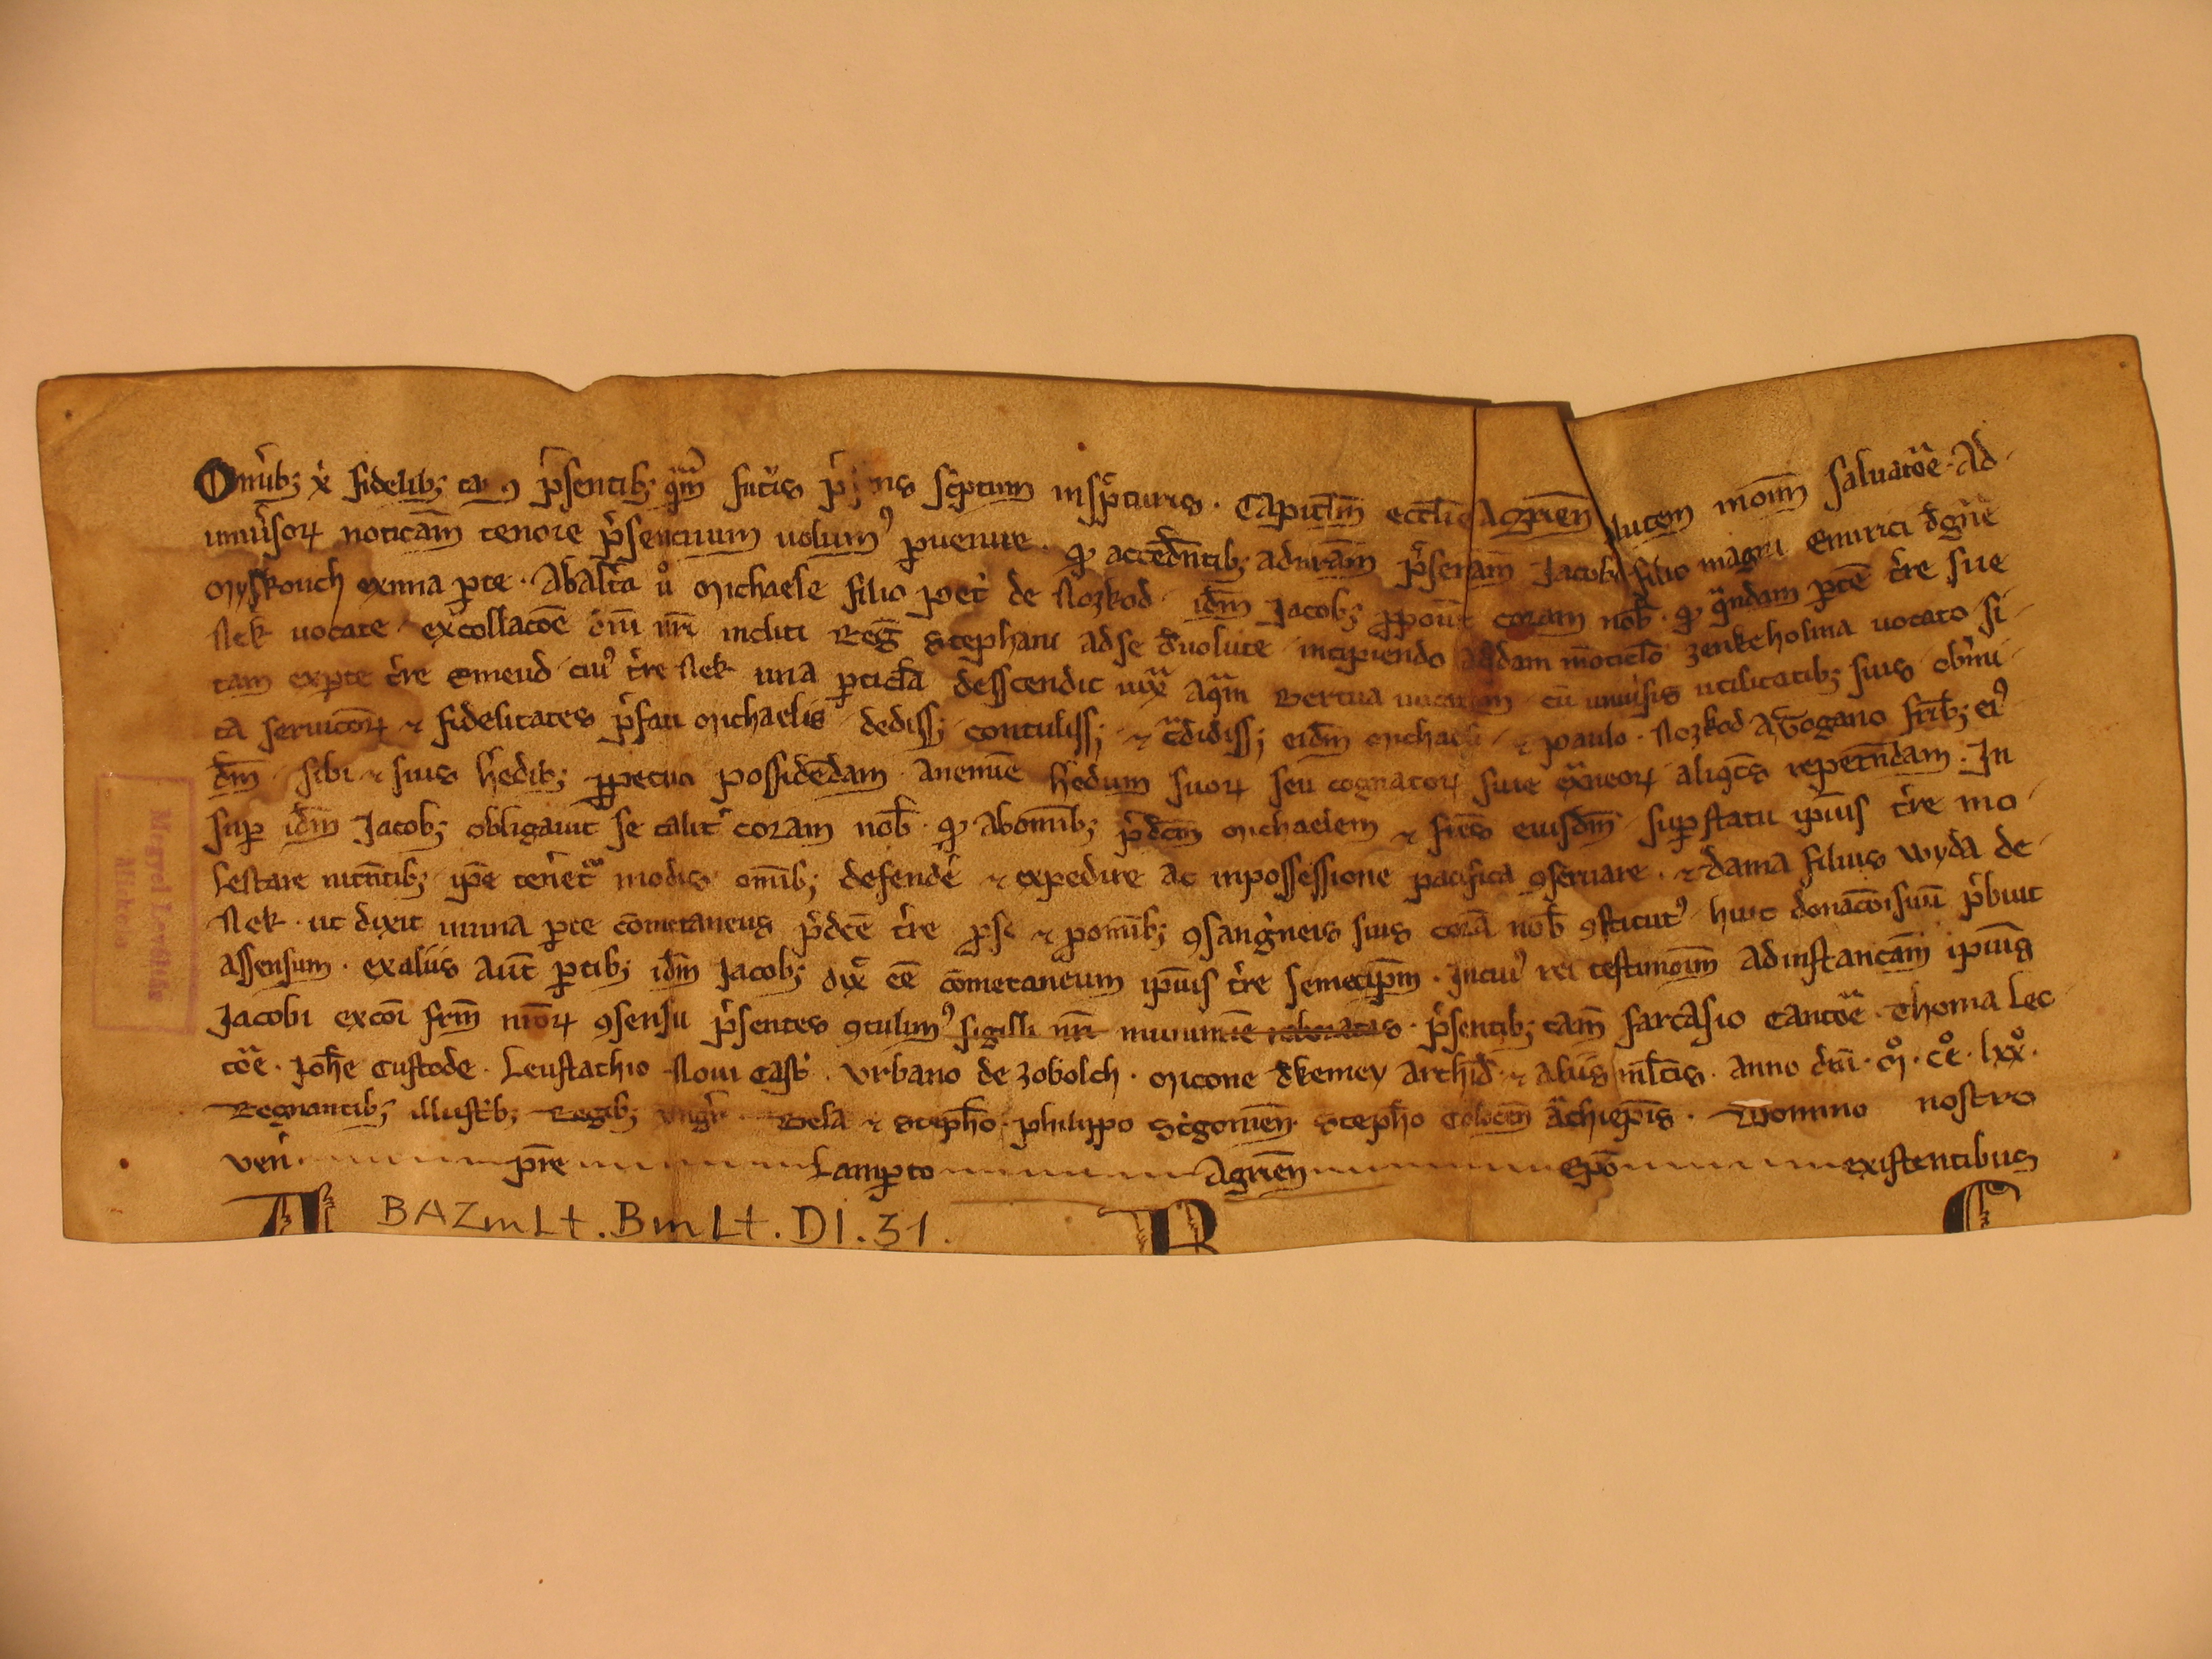 Om̄ib; x̄ fidelib; tam p̄sentib; q̄m fut̄is p̄sens sc̄ptum insp̄cturis. Capitl̄m eccl̄ie Agrien̄ lutem in om̄m saluatoē. Ad
uniūsoꝝ noticiam tenore p̄sencium uolum⁹ ꝑuenire. qͫ accedn̄tib; ad nr̄am p̄senciam Jacobo filio magr̄i Emirici de gn̄e
Myskouch ex una ꝑte. Ab alt̄a ů Michaele filio Pet̄ de Nozkod. id̄m Jacob; ꝓpoūt coram nob̄. qͫ q̄ndam ꝑtē t̄re sue
Nek uocate ex collacōe dn̄i nr̄i incliti Reḡ Stephani ad se deuolute incipiendo a q̄dam monticlo zenkeholma uocato si
tam ex ꝑte t̄re Emeud cui⁹ t̄re Nek una ꝑticl̄a desscendit iux̄ aq̄m Bertua uocatam cū uniūsis utilitatib; suis ob m̄i
ta seruicioꝝ ⁊ fidelitates p̄fati Michaelis dediss; contuliss; ⁊ t̄didiss; eid̄m Michaeli ⁊ Paulo. Nozkod A Gogano fr̄ib; ei⁹
d̄m sibi ⁊ suis h̄edib; ꝑpetuo possidēdam. A nemīe h̄edum suoꝝ seu cognatoꝝ siue ex̄neoꝝ aliq̄ten⁹ repetn̄dam. In
suꝑ id̄m Jacob; obligauit se talit̄ coram nob̄. qͫ ab om̄ib; p̄dcm̄ Michaelem ⁊ fr̄es eiusd̄m suꝑ statu ip̄ius t̄re mo
lestare nitn̄tib; ip̄e tenet̄ modis om̄ib; defende̅ ⁊ expedire ac in possessione pacifica ꝯseruare. ⁊ dama filius Wyda de
Nek. ut dixit in una ꝑte cōmetaneus p̄dcē t̄re ꝑ se ⁊ ꝑ om̄ib; ꝯsangīneis suis corā nob̄ ꝯstitut⁹ huic donacōi suū p̄buit
assensum. ex aliis aūt ꝑtib; id̄m Jacob; dix̄ eē cōmetaneum ip̄ius t̄re semetip̄m. In cui⁹ rei testimoīm ad instanciam ip̄ius
Jacobi ex coī frm̄ nr̄oꝝ ꝯsensu p̄sentes ꝯtulim⁹ sigilli nr̄i munimīe roboratas. p̄sentib; tam̄ farcasio Cantoē. Thoma Lec
toē. Joh̄e Custode. Leustachio Noui Castī. Vrbano de Zobolch. Micone de kemey Archid̄. ⁊ aliis ml̄tis. Anno dn̄i. M̊. CC̊. Lxx̊.
Regnantib; illustīb; Regib; Vngr̄. Bela ⁊ Steph̄o. Philippo Strigonien̄. Steph̄o Colocen̄ Archiep̄is. Domino nostro
ven̄ pr̄e Lamꝑto Agrien̄ Ep̄o existentibus
BAZmLt. BmLt. Dl. 31.